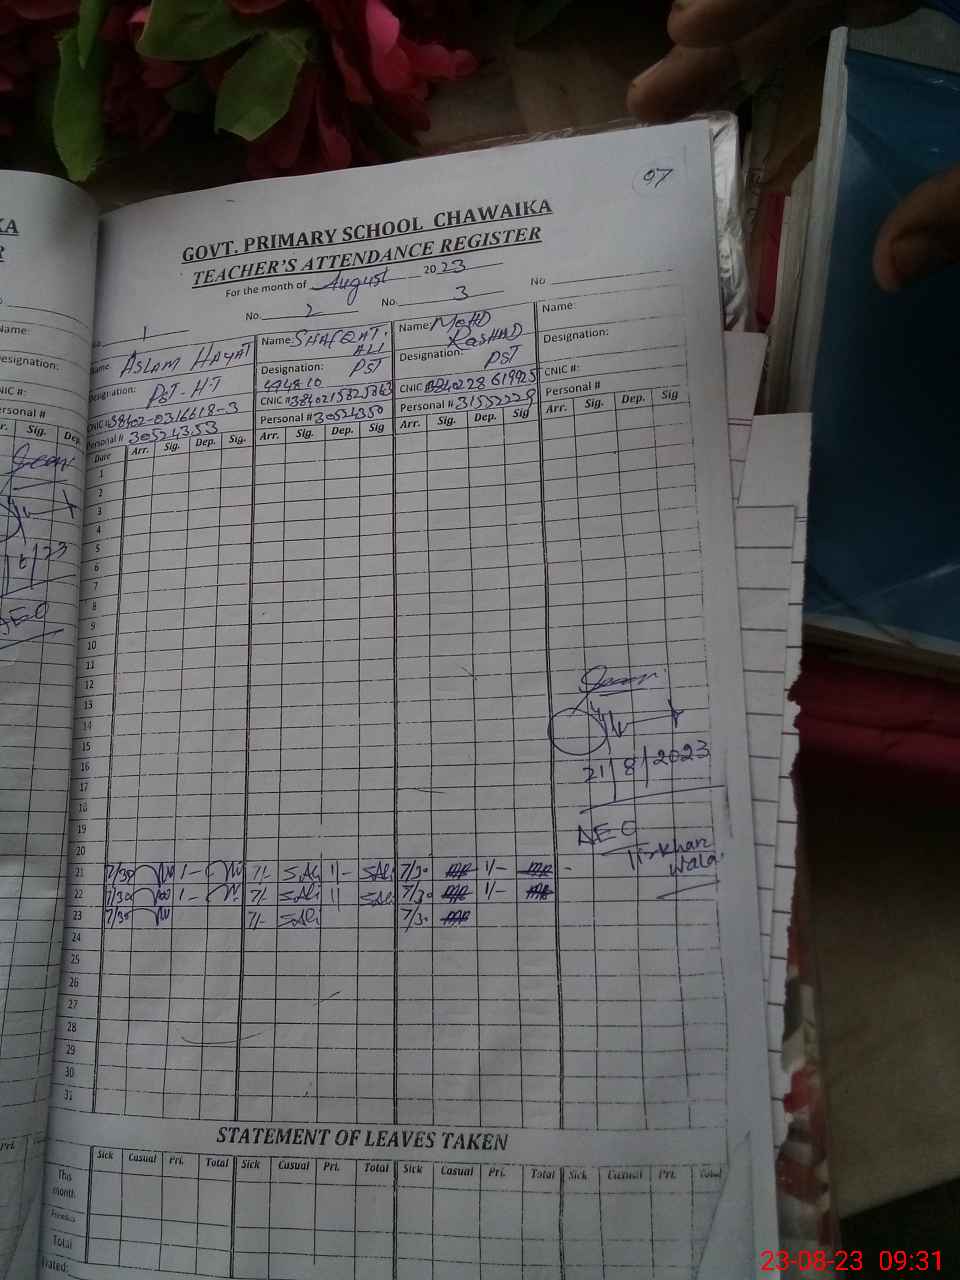 97
GOVT. PRIMARY SCHOOL CHAWAIKA
TEACHER'S ATTENDANCE REGISTER
For the month of August 2023
No. 1 No. 2 No. 3 No
Name: ASLAM HAYAT
Designation: PST-HT
CNIC # 38402-0316618-3
Personal # 30524353
Name: SHAFQAT. ALI
Designation: PST
CNIC #: 3840215825863
Personal # 30524350
Name: MOHD RASHAD
Designation: PST
CNIC #3840228619925
Personal # 31552229
Name:
Designation:
CNIC #:
Personal #
Date Arr. Sig. Dep. Sig. Arr. Sig. Dep. Sig. Arr. Sig. Dep. Sig Arr. Sig. Dep. Sig
1
2
3
4
5
6
7
8
9
10
11
12
13
14
15
16
17
18
19
20
21 7/30 1- 7/- SAli 1/- SAli 7/30 1/-
22 7/30 1- 7/- SAli 1/ SAli 7/30 1/-
23 7/30 7/- SAli 7/30
24
25
26
27
28
29
30
31
21/8/2023
AEO
wala
STATEMENT OF LEAVES TAKEN
Sick Casual Pri. Total Sick Casual Pri. Total Sick Casual Pri. Total Sick Casual Pri. Total
This month
Previous
Total
Dated:
23-08-23 09:31